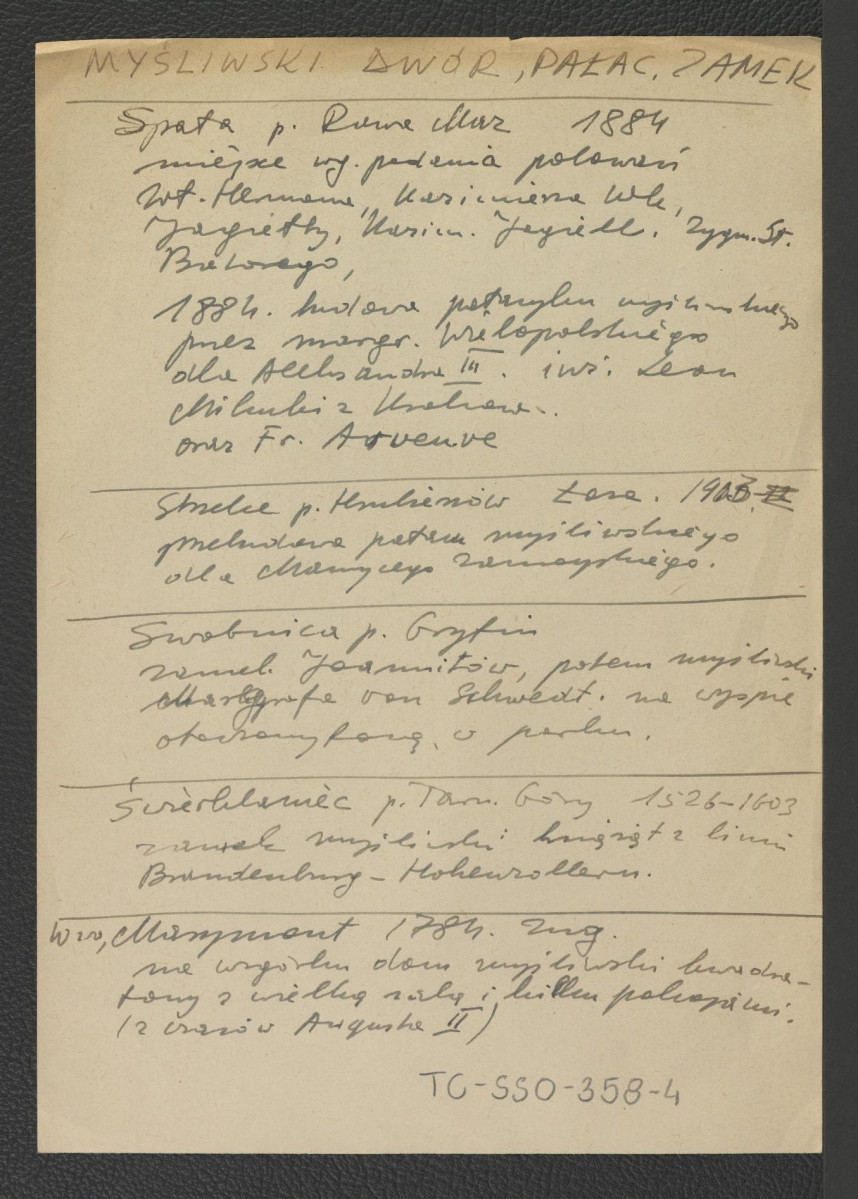 MYŚLIWSKI DWÓR, PAŁAC, ZAMEK
Spała p. Rawa Maz 1884
miejsce wg. podania polowań
Wł. Hermana, Kazimierza Wlk,
Jagiełły, Kazim. Jagiell. Zygm. St.
Batorego,
1884. budowa pałacyku myśliwskiego
przez margr. Wielopolskiego
dla Aleksandra III. inż. Leon
Mikucki z Krakowa.
oraz Fr. Arveuve
p. Hrubieszów 1913
przebudowa pałacu myśliwskiego
dla Maurycego Zamoyskiego.
Swobnica p. Gryfin
zamek Joannitów, potem myśliwski
Markgrafa von Schwedt. na wyspie
w parku.
Świerklaniec p. Tarn. Góry 1526-1603
zamek myśliwski książąt z linii
Brandenburg - Hohenzollern.
Wwa, Marymont 1784. Zug.
na wzgórku dom myśliwski kwadra-
towy z wielką salą i kilku pokojami.
(z czasów Augusta II)
TC-SSO-358-4